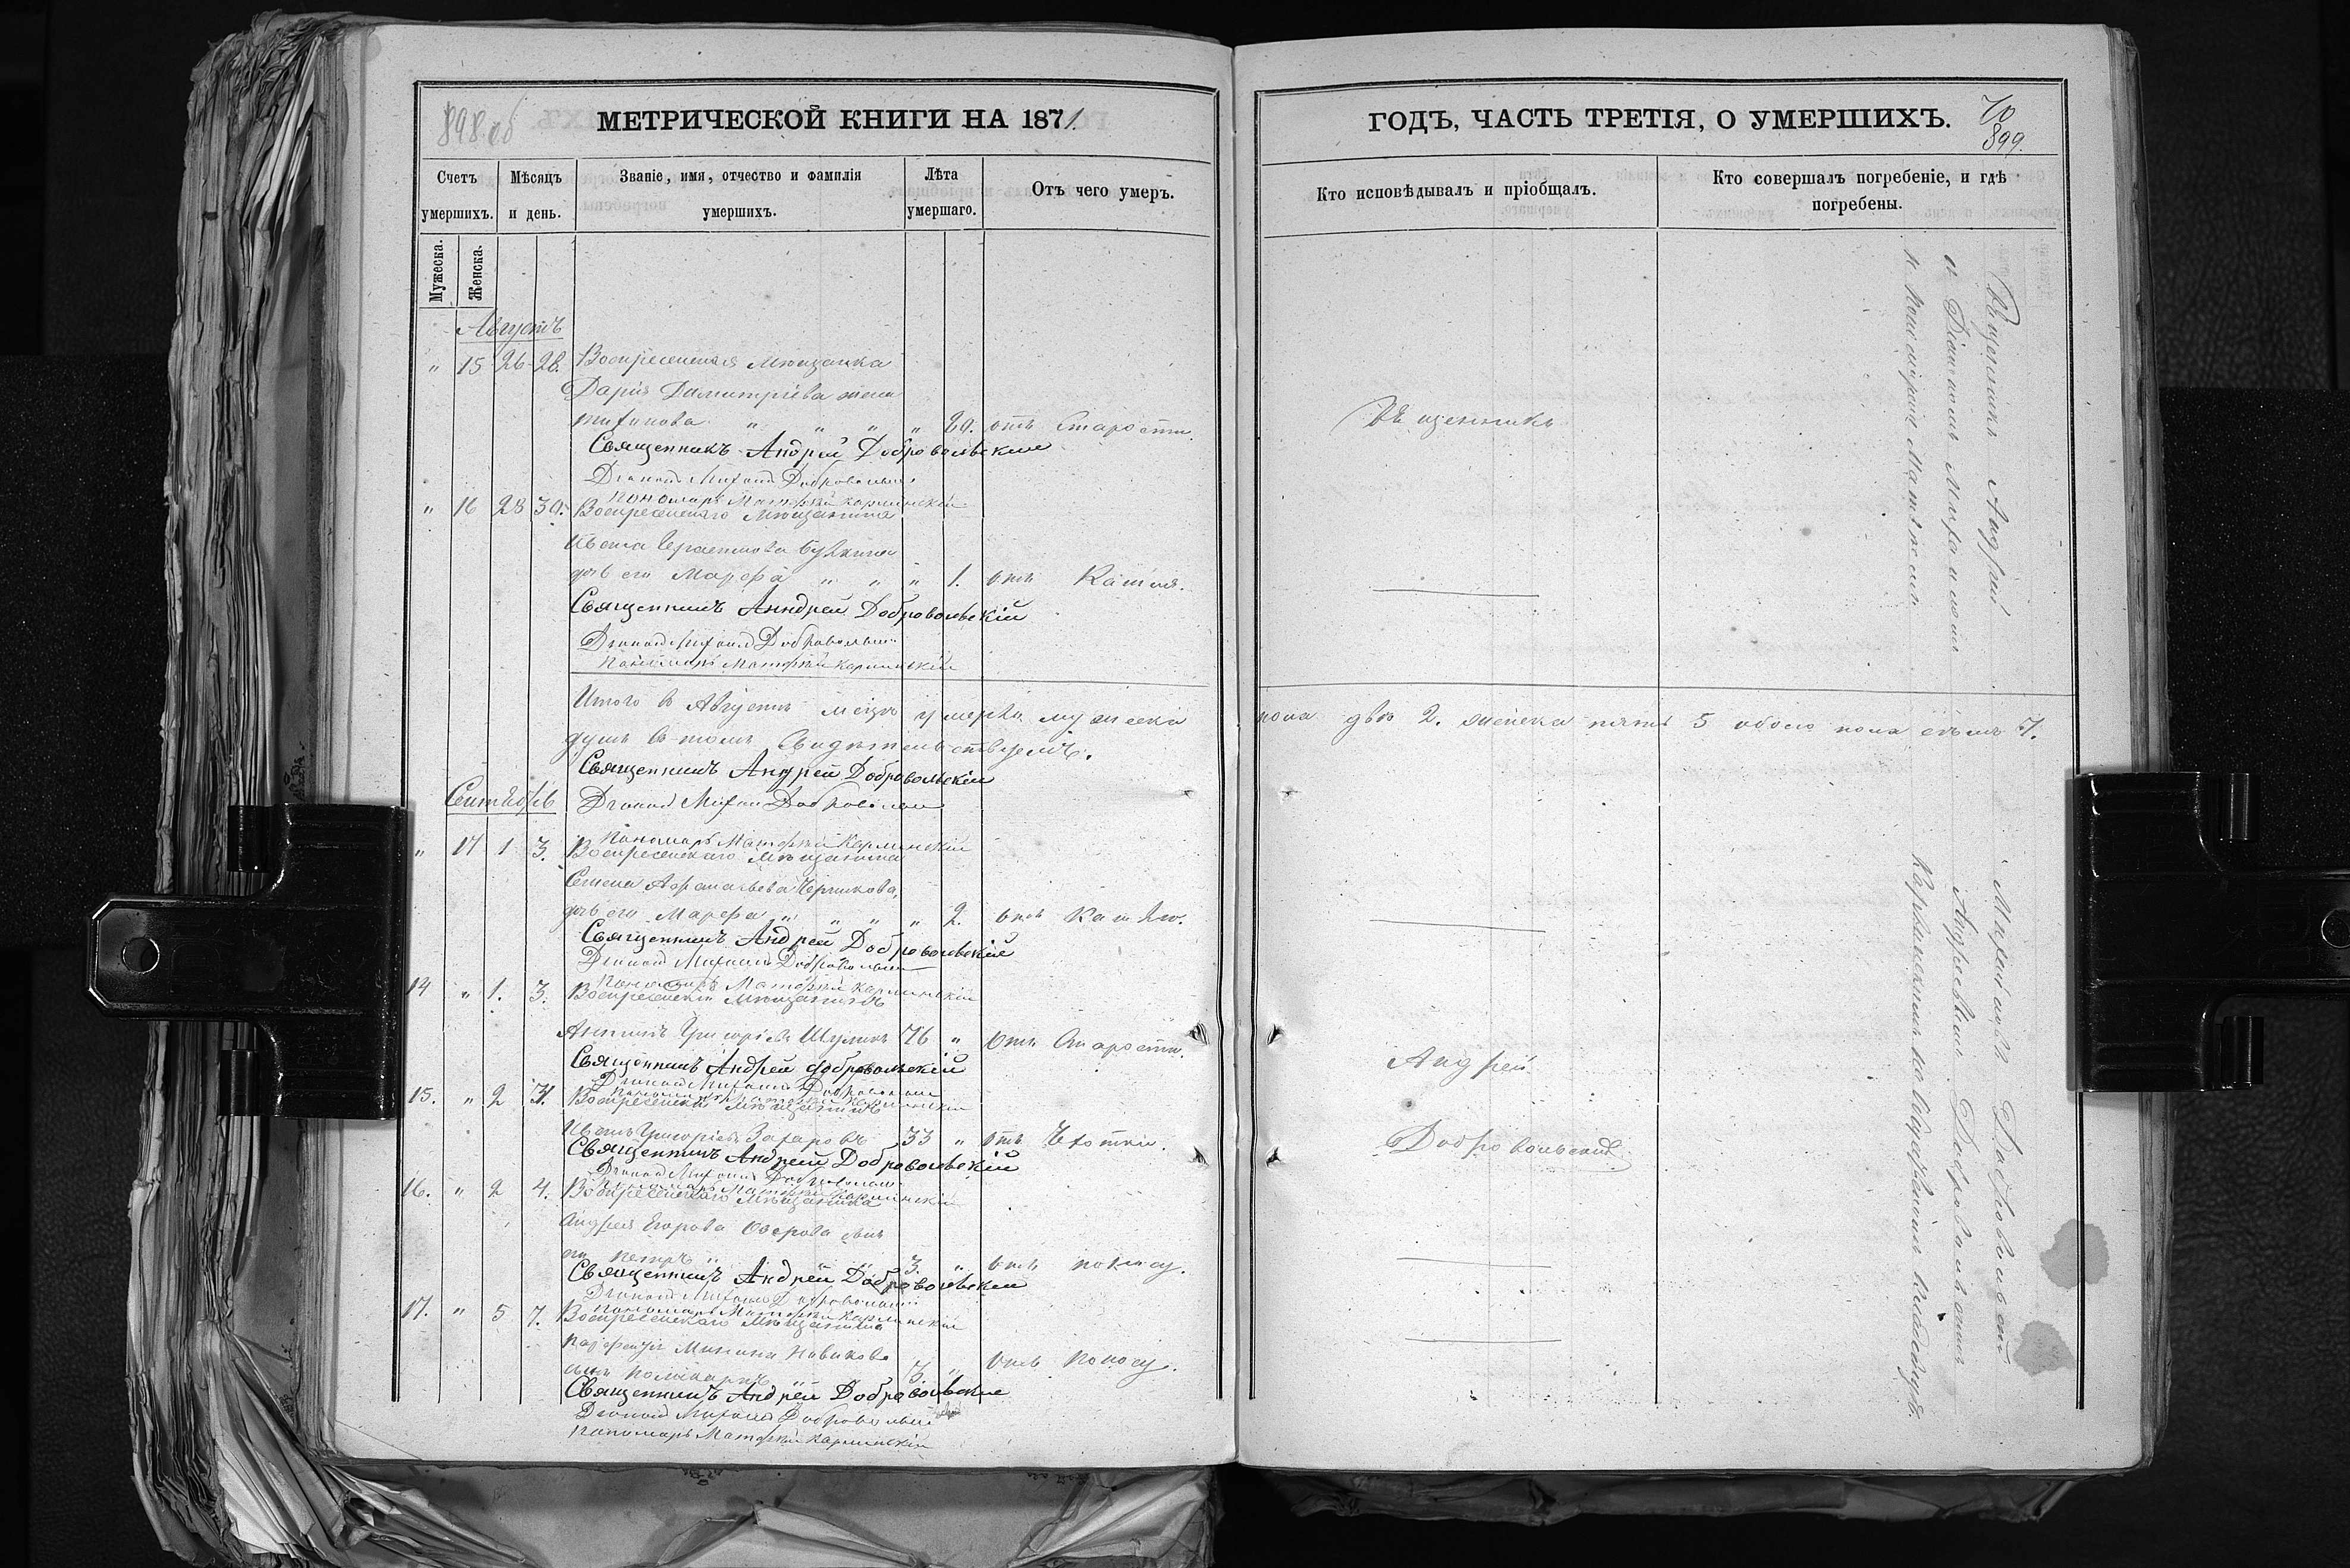 898 об
МЕТРИЧЕСКОЙ КНИГИ НА 1871.
Счетъ умершихъ.
Мѣсяцъ и день.
Званіе, имя, отчество и фамилія умершихъ.
Лѣта умершаго.
Отъ чего умеръ.
Мужеска.
Женска.
Августъ
" 15 26 28. Воскресенская Мѣщанка
Дарія Димитріева жена
" " " " 89. отъ Старости.
Священникъ Андрей Добровольскій
Діаконъ Михаилъ Добровольскій
Пономарь Матфей Карпинскій
" 16 28 30. Воскресенскаго Мѣщанина
Ивана
дочь его Марфа " " " 1. отъ Кашля.
Священникъ Анндрей Добровольскій
Діаконъ Михаилъ Добровольскій
Пономарь Матфей Карпинскій
Итого в Августѣ месяцѣ умерло мужеска
душъ В томъ Свидѣтельствуемъ.
Священникъ Андрей Добровольскій
Сентябрь
Діаконъ Михаилъ Добровольскій
Пономарь Матфей Карпинскій
" 17 1 3. Воскресенскаго Мѣщанина
Семена Афанасьева Черникова,
дочь его Марфа " " " " 2. отъ Кашлю.
Священникъ Андрей Добровольскій
Діаконъ Михаилъ Добровольскій
Пономарь Матфей Карпинскій
14 " 1. 3. Воскресенскій Мѣщанинъ
Григорьевъ 76 " отъ Старости.
Священникъ Андрей Добровольскій
Діаконъ Михаилъ Добровольскій
Пономарь Матфей Карпинскій
15. " 2 4. Воскресенскій Мѣщанинъ
Иванъ Григорьевъ Захаровъ 33 " отъ Чахотки.
Священникъ Андрей Добровольскій
Діаконъ Михаилъ Добровольскій
Пономарь Матфей Карпинскій
16. " 2 4. Воскресенскаго Мѣщанина
Андрея Егорова Озерова сынъ
его Петръ " " 3. " отъ поносу.
Священникъ Андрей Добровольскій
Діаконъ Михаилъ Добровольскій
Пономарь Матфей Карпинскій
17. " 5 7. Воскресенскаго Мѣщанина
Минина Новикова
сынъ 3. " отъ поносу.
Священникъ Андрей Добровольскій
Діаконъ Михаилъ Добровольскій
Пономарь Матфей Карпинскій
ГОДЪ, ЧАСТЬ ТРЕТІЯ, О УМЕРШИХЪ.
70
899.
Кто исповѣдывалъ и пріобщалъ.
Кто совершалъ погребеніе, и гдѣ погребены.
Священникъ
пола два 2. женска пять 5 обоего пола семь 7.
Андрей
Добровольскій
Священникъ Андрей Михайловъ Добровольскій
съ Діакономъ Михаиломъ Андреевымъ Добровольскимъ
и Пономаремъ Матѳеемъ Карпинскимъ на Кладбищѣ.